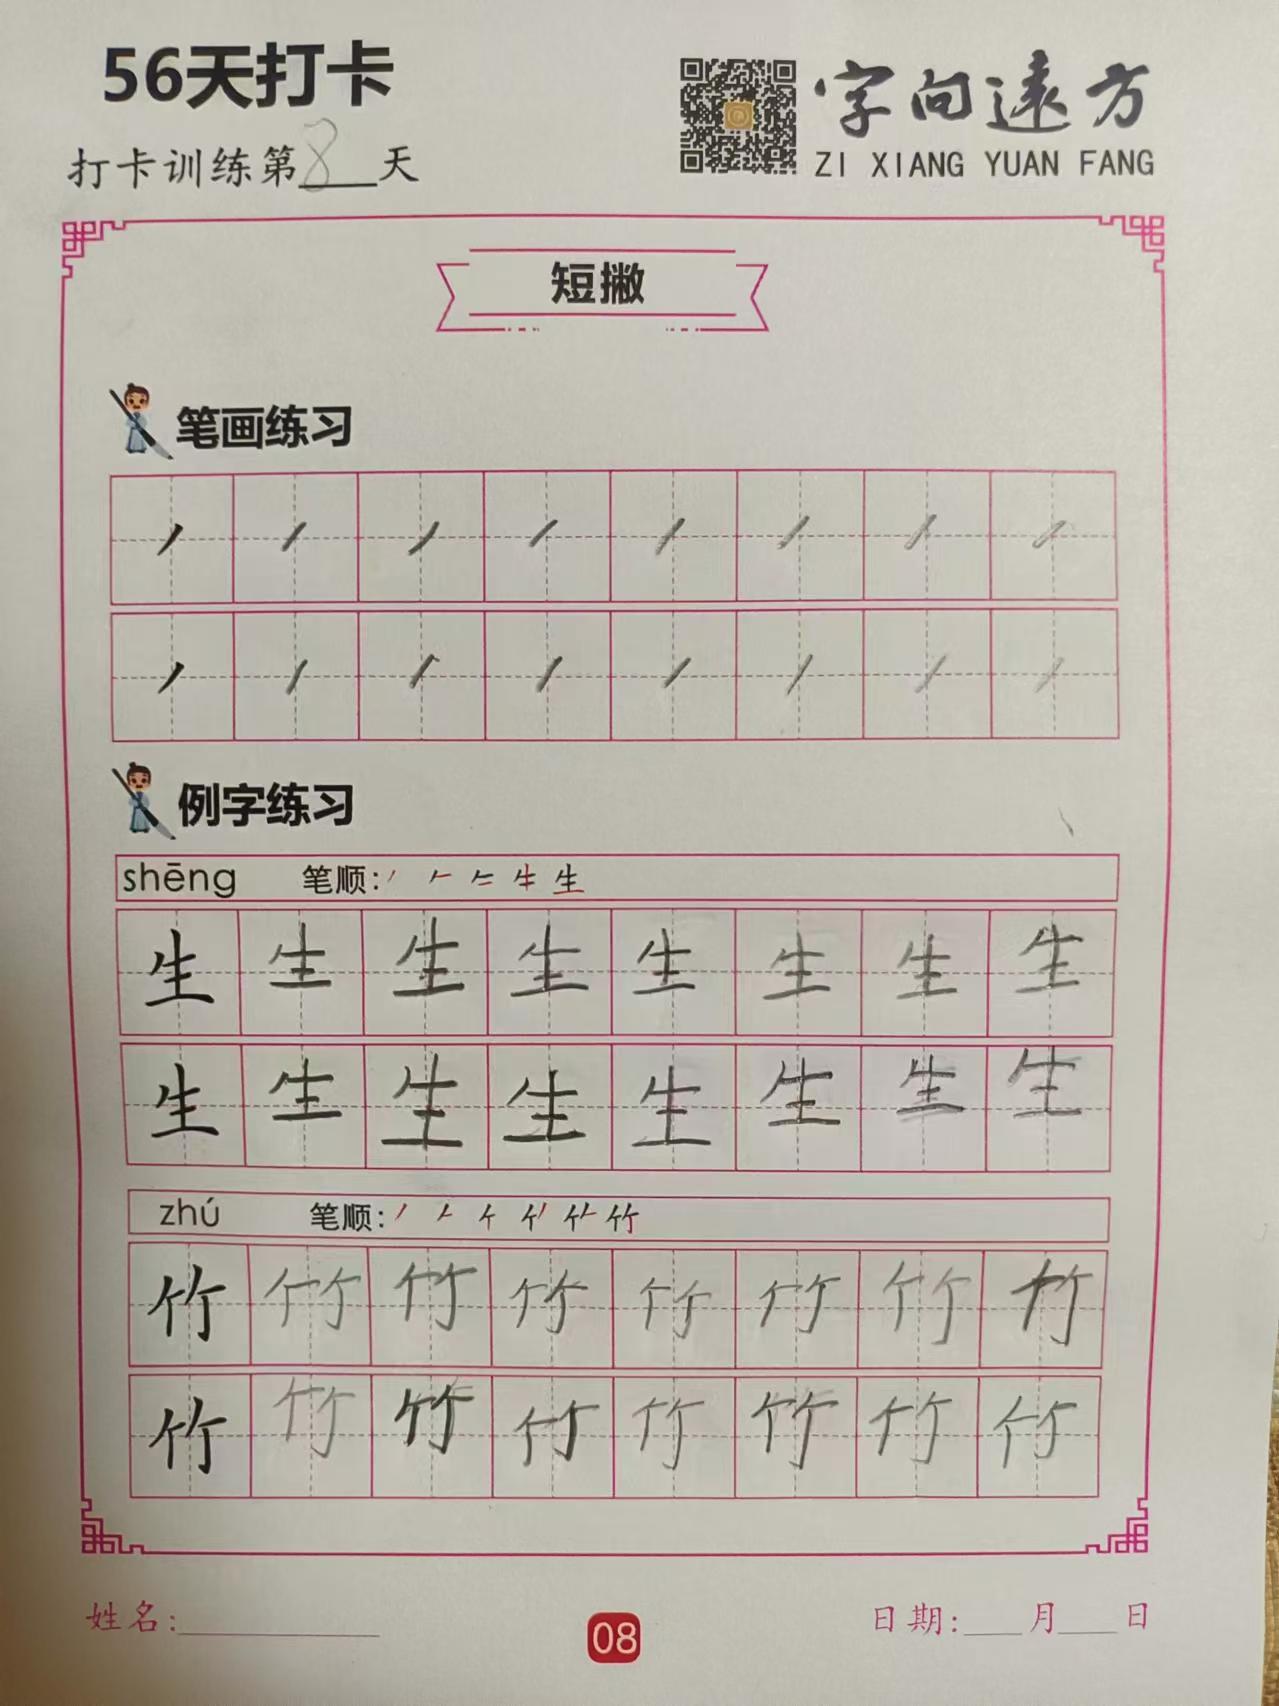 56天打卡
字向遠方
打卡训练第8天
ZI XIANG YUAN FANG
短撇
笔画练习
丿 丿 丿 丿 丿 丿 丿 丿
丿 丿 丿 丿 丿 丿 丿 丿
例字练习
shēng 笔顺:
生 生 生 生 生 生 生 生
生 生 生 生 生 生 生 生
zhú 笔顺:
竹 竹 竹 竹 竹 竹 竹 竹
竹 竹 竹 竹 竹 竹 竹 竹
姓名:
08
日期: 月 日